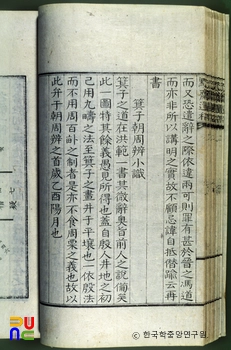 而又恐遣辭之際依違兩可則罪有甚於晉之馮道
而亦非所以講明之實故不顧忌諱自抵僭踰云再
書
箕子朝周辨小識
箕子之道在洪範一書其微辭奧旨前人之說備矣
此一圖特其餘義愚見所得也蓋自殷人井地之初
已用九疇之法至箕子之畫井于平壤也一依殷法
而不用周百畝之制者是亦不食周粟之義也故以
此弁于朝周辨之首歲乙酉陽月也
한국학중앙연구원